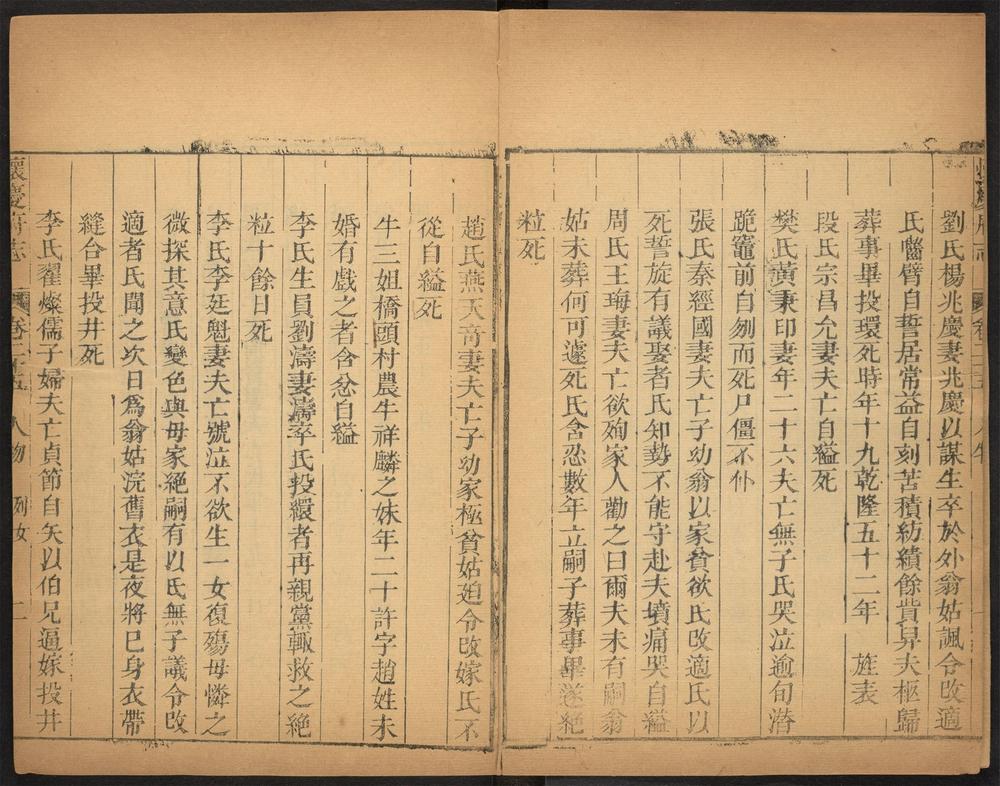 劉氏楊兆慶妻兆慶以謀生卒於外翁姑諷令改適
氏嚙臂自誓居常益自刻苦積紡績餘貲舁夫柩歸
葬事畢投環死時年十九乾隆五十二年　旌表
段氏宗昌允妻夫亡自縊死
樊氏黃秉印妻年二十六夫亡無子氏哭泣逾旬潛
跪竈前自刎而死尸僵不仆
張氏秦經國妻夫亡子幼翁以家貧欲氏改適氏以
死誓旋有議娶者氏知勢不能守赴夫墳痛哭自縊
周氏王珻妻夫亡欲殉家人勸之曰爾夫未有嗣翁
姑未葬何可遽死氏含忍數年立嗣子葬事畢遂絶
粒死
趙氏燕天奇妻夫亡子幼家極貧姑廹令改嫁氏不
從自縊死
牛三姐橋頭村農牛祥麟之妹年二十許字趙姓未
婚有戲之者含忿自縊
李氏生員劉濤妻濤卒氏投繯者再親黨輒救之絶
粒十餘日死
李氏李廷魁妻夫亡號泣不欲生一女復殤母憐之
微探其意氏變色與母家絕嗣有以氏無子議令改
適者氏聞之次日爲翁姑浣舊衣是夜將巳身衣帶
縫合畢投井死
李氏翟燦儒子婦夫亡貞節自矢以伯兄逼嫁投井
懷慶府志 卷二十五 人物 列女 二